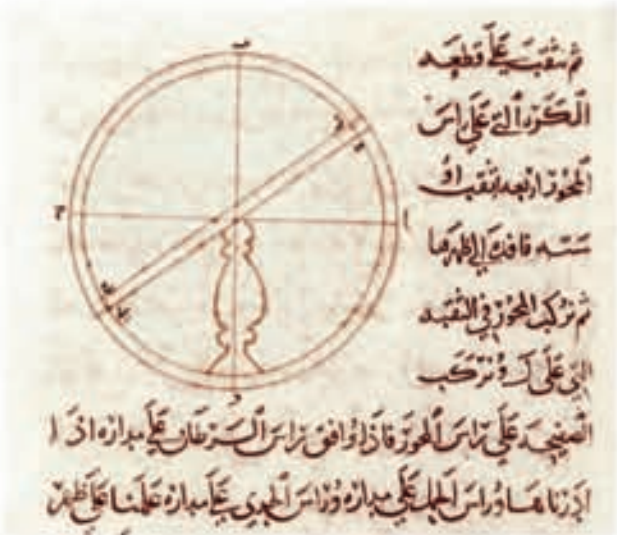 ثم نثقب على قطعه
الكره التي على راس
المحور اربعه اثقب او
سته نافذه الى ظهرها
ثم نركب المحور في الثقبه
التي على ونركب
الصفيحه على راس المحور فاذا وافق راس السرطان على مداره اذا
ادرناها وراس الحمل على مداره وراس الجدي على مداره علمنا على ظهر
ب
ا
ج
د